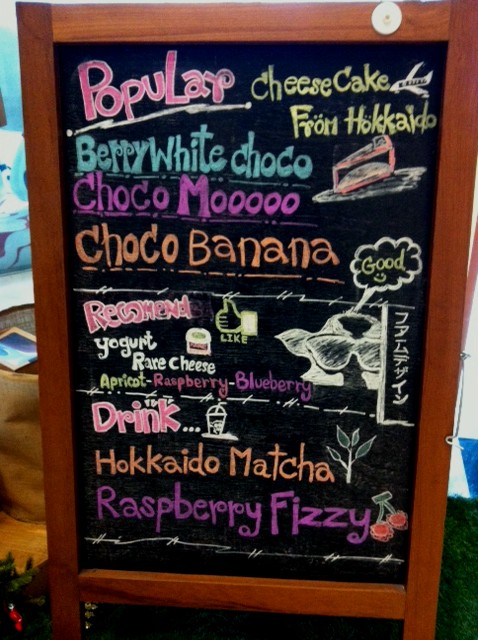 Popular
CheeseCake
From Hökkaido
BerryWhite choco
Choco Mooooo
Choco Banana
Good
Recomend
LIKE
yogurt
Rare cheese
Apricot-Raspberry-Blueberry
ファームデザイン
Drink...
Hokkaido Matcha
Raspberry Fizzy